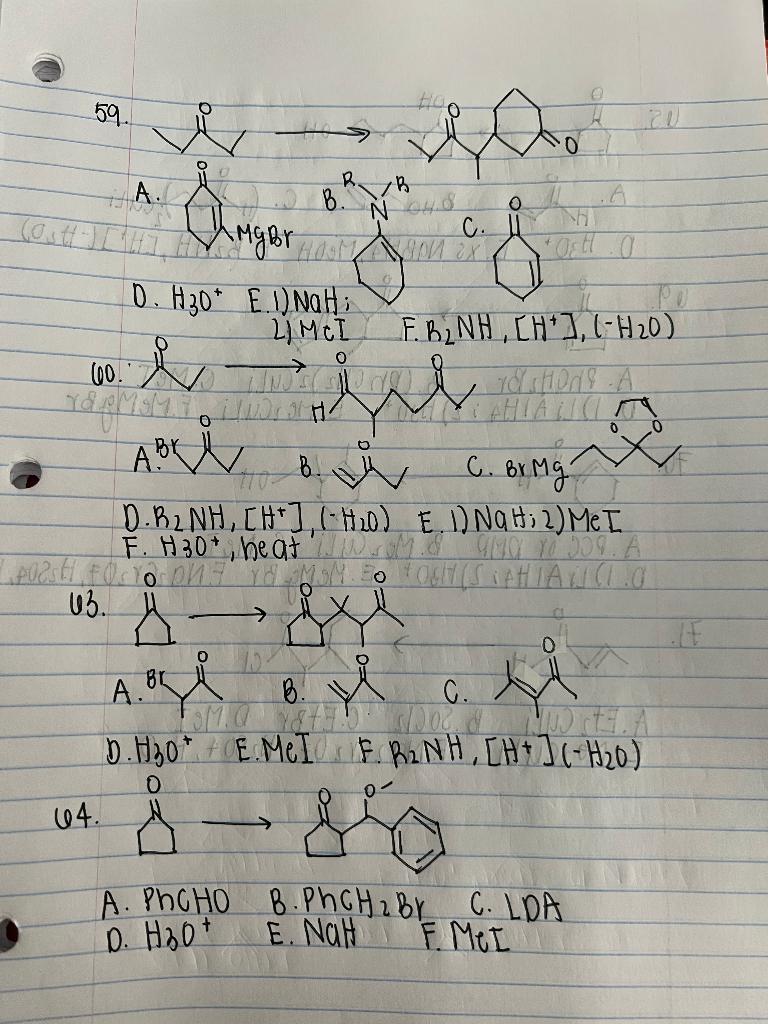 59.
O
O
O
A. O
MgBr
B. R R
N
C. O
D. H3O+ E. 1) NaH;
2) MeI F. R2NH, [H+], (-H2O)
60. O
O O
H
A. Br O
B. O
C. BrMg O O
D. R2NH, [H+], (-H2O) E. 1) NaH; 2) MeI
F. H3O+, heat
63. O
O O
A. Br O
B. O
C. O
D. H3O+ E. MeI F. R2NH, [H+] (-H2O)
64. O
O O
A. PhCHO B. PhCH2Br C. LDA
D. H3O+ E. NaH F. MeI